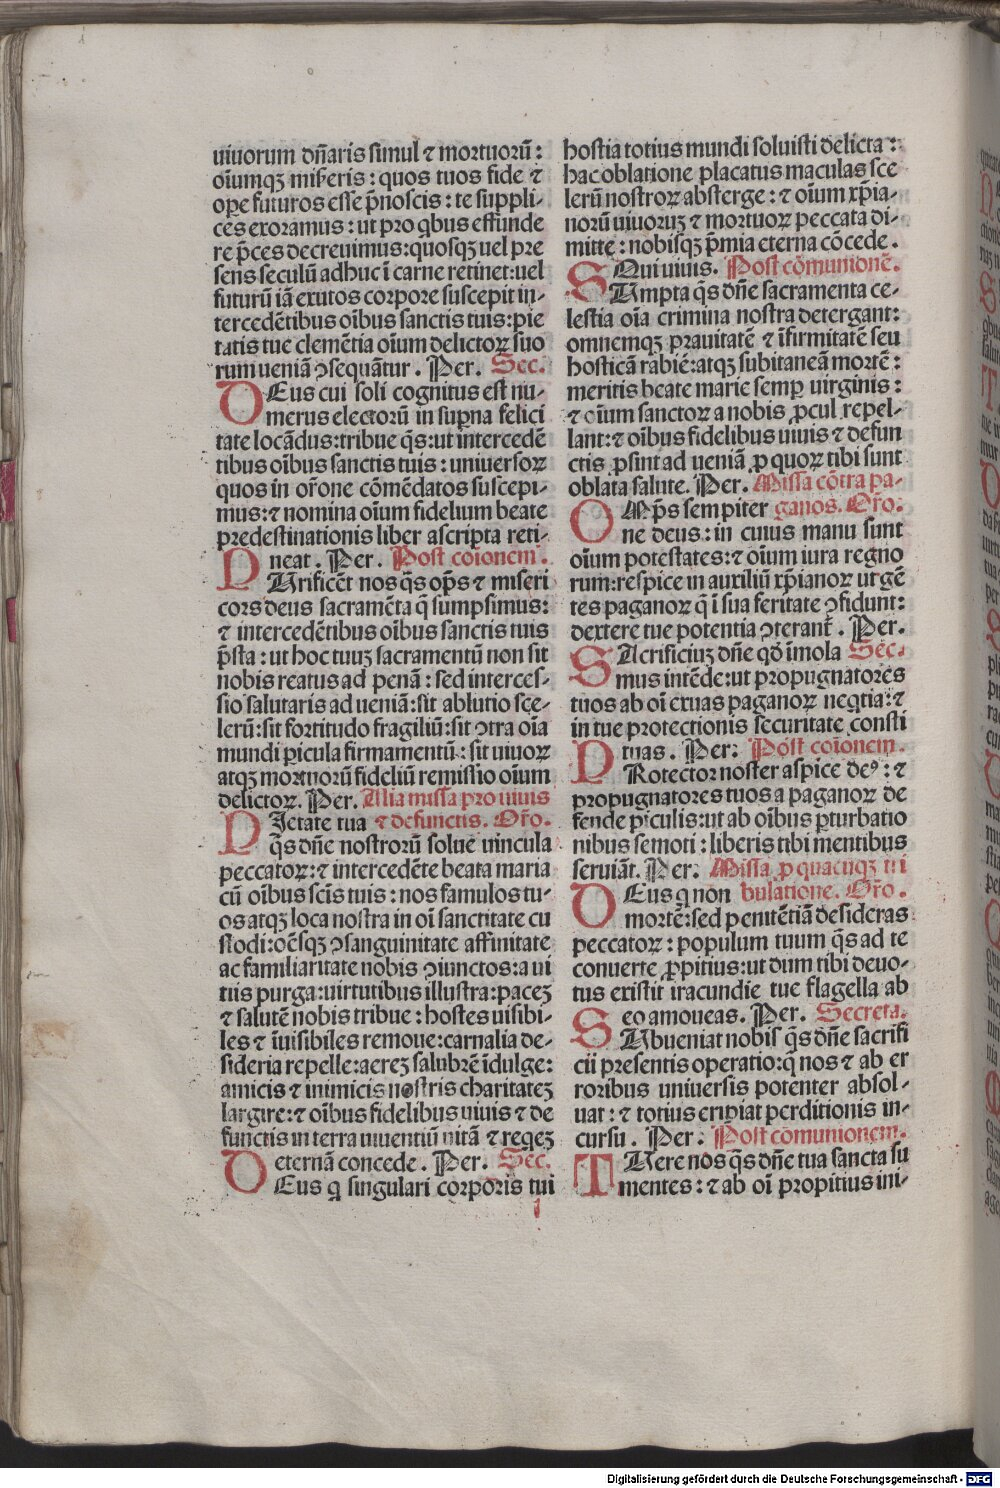 uiuorum dn̄aris simul ⁊ mortuorū:
oīumqꝫ miẜeris: quos tuos fide ⁊
oꝑe futuros esse p̄noscis: te suppli-
ces exoramus: ut pro qbus effunde
re p̄ces decreuimus: quosqꝫ uel pre
sens seculū adhuc ī carne retinet: uel
futurū iā exutos corpore suscepit in-
tercedētibus oībus sanctis tuis: pie
tatis tue clemētia oīum delictoꝝ suo
rum ueniā ꝯsequātur. Per. Sec.
DEus cui soli cognitus est nu-
merus electorū in suꝑna felici
tate locādus: tribue q̄s: ut intercedē
tibus oībus sanctis tuis: uniuersoꝝ
quos in or̄one cōmēdatos suscepi-
mus: ⁊ nomina oīum fidelium beate
predestinationis liber ascripta reti-
neat. Per. Post coīonem.
PUrificēt nos q̄s op̄s ⁊ miseri
cors deus sacramēta q̄ sumpsimus:
⁊ intercedētibus oībus sanctis tuis
p̄sta: ut hoc tuuꝫ sacramentū non sit
nobis reatus ad penā: sed interces-
sio salutaris ad ueniā: sit ablutio sce-
lerū: sit fortitudo fragiliū: sit ꝯtra oīa
mundi ꝑicula firmamentū: sit uiuoꝝ
atqꝫ mortuorū fideliū remissio oīum
delictoꝝ. Per. Alia missa pro uiuis
PIetate tua ⁊ defunctis. Or̄o.
q̄s dn̄e nostrorū solue uincula
peccatoꝝ: ⁊ intercedēte beata maria
cū oībus scīs tuis: nos famulos tu-
os atqꝫ loca nostra in oī sanctitate cu
stodi: oēsqꝫ ꝯsanguinitate affinitate
ac familiaritate nobis ꝯiunctos: a ui
tiis purga: uirtutibus illustra: paceꝫ
⁊ salutē nobis tribue: hostes uisibi-
les ⁊ īuisibiles remoue: carnalia de-
sideria repelle: aereꝫ salubrē īdulge:
amicis ⁊ inimicis nostris charitateꝫ
largire: ⁊ oībus fidelibus uiuis ⁊ de
functis in terra uiuentiū uitā ⁊ reqeꝫ
eternā concede. Per. Sec.
DEus q singulari corporis tui
hostia totius mundi soluisti delicta:
hac oblatione placatus maculas sce
lerū nostroꝝ absterge: ⁊ oīum xp̄ia-
norū uiuoruꝫ ⁊ mortuoꝝ peccata di-
mitte: nobisqꝫ p̄mia eterna cōcede.
Qui uiuis. Post cōmunionē.
SUmpta q̄s dn̄e sacramenta ce-
lestia oīa crimina nostra detergant:
omnemqꝫ prauitatē ⁊ īfirmitatē seu
hosticā rabiē: atqꝫ subitaneā mortē:
meritis beate marie semꝑ uirginis:
⁊ oīum sanctoꝝ a nobis ꝓcul repel-
lant: ⁊ oībus fidelibus uiuis ⁊ defun
ctis ꝓsint ad ueniā ꝓ quoꝝ tibi sunt
oblata salute. Per. Missa cōtra pa-
OMp̄s sempiter ganos. Or̄o.
ne deus: in cuius manu sunt
oīum potestates: ⁊ oīum iura regno
rum: respice in auxiliū xp̄ianoꝝ ut gē
tes paganoꝝ q̄ ī sua feritate ꝯfidunt:
dextere tue potentia ꝯterant̄. Per.
SAcrificiuꝫ dn̄e qd̄ īmola Sec.
mus intēde: ut propugnatores
tuos ab oī exuas paganoꝝ neqtia: ⁊
in tue protectionis securitate consti
tuas. Per: Post coīonem.
PRotector noster aspice deꝰ: ⁊
propugnatores tuos a paganoꝝ de
fende ꝑiculis: ut ab oībus ꝑturbatio
nibus semoti: liberis tibi mentibus
seruiāt. Per: Missa ꝓ quacūqꝫ tri
DEus q non bulatione. Or̄o.
mortē: sed penitētiā desideras
peccatoꝝ: populum tuum q̄s ad te
conuerte ꝓpitius: ut dum tibi deuo-
tus existit iracundie tue flagella ab
eo amoueas. Per. Secreta.
SUbueniat nobis q̄s dn̄e sacrifi
cii presentis operatio: q̄ nos ⁊ ab er
roribus uniuersis potenter absol-
uat: ⁊ totius eripiat perditionis in-
cursu. Per: Post comunionem.
TUere nos q̄s dn̄e tua sancta su
mentes: ⁊ ab oī propitius ini-
Digitalisierung gefördert durch die Deutsche Forschungsgemeinschaft - DFG